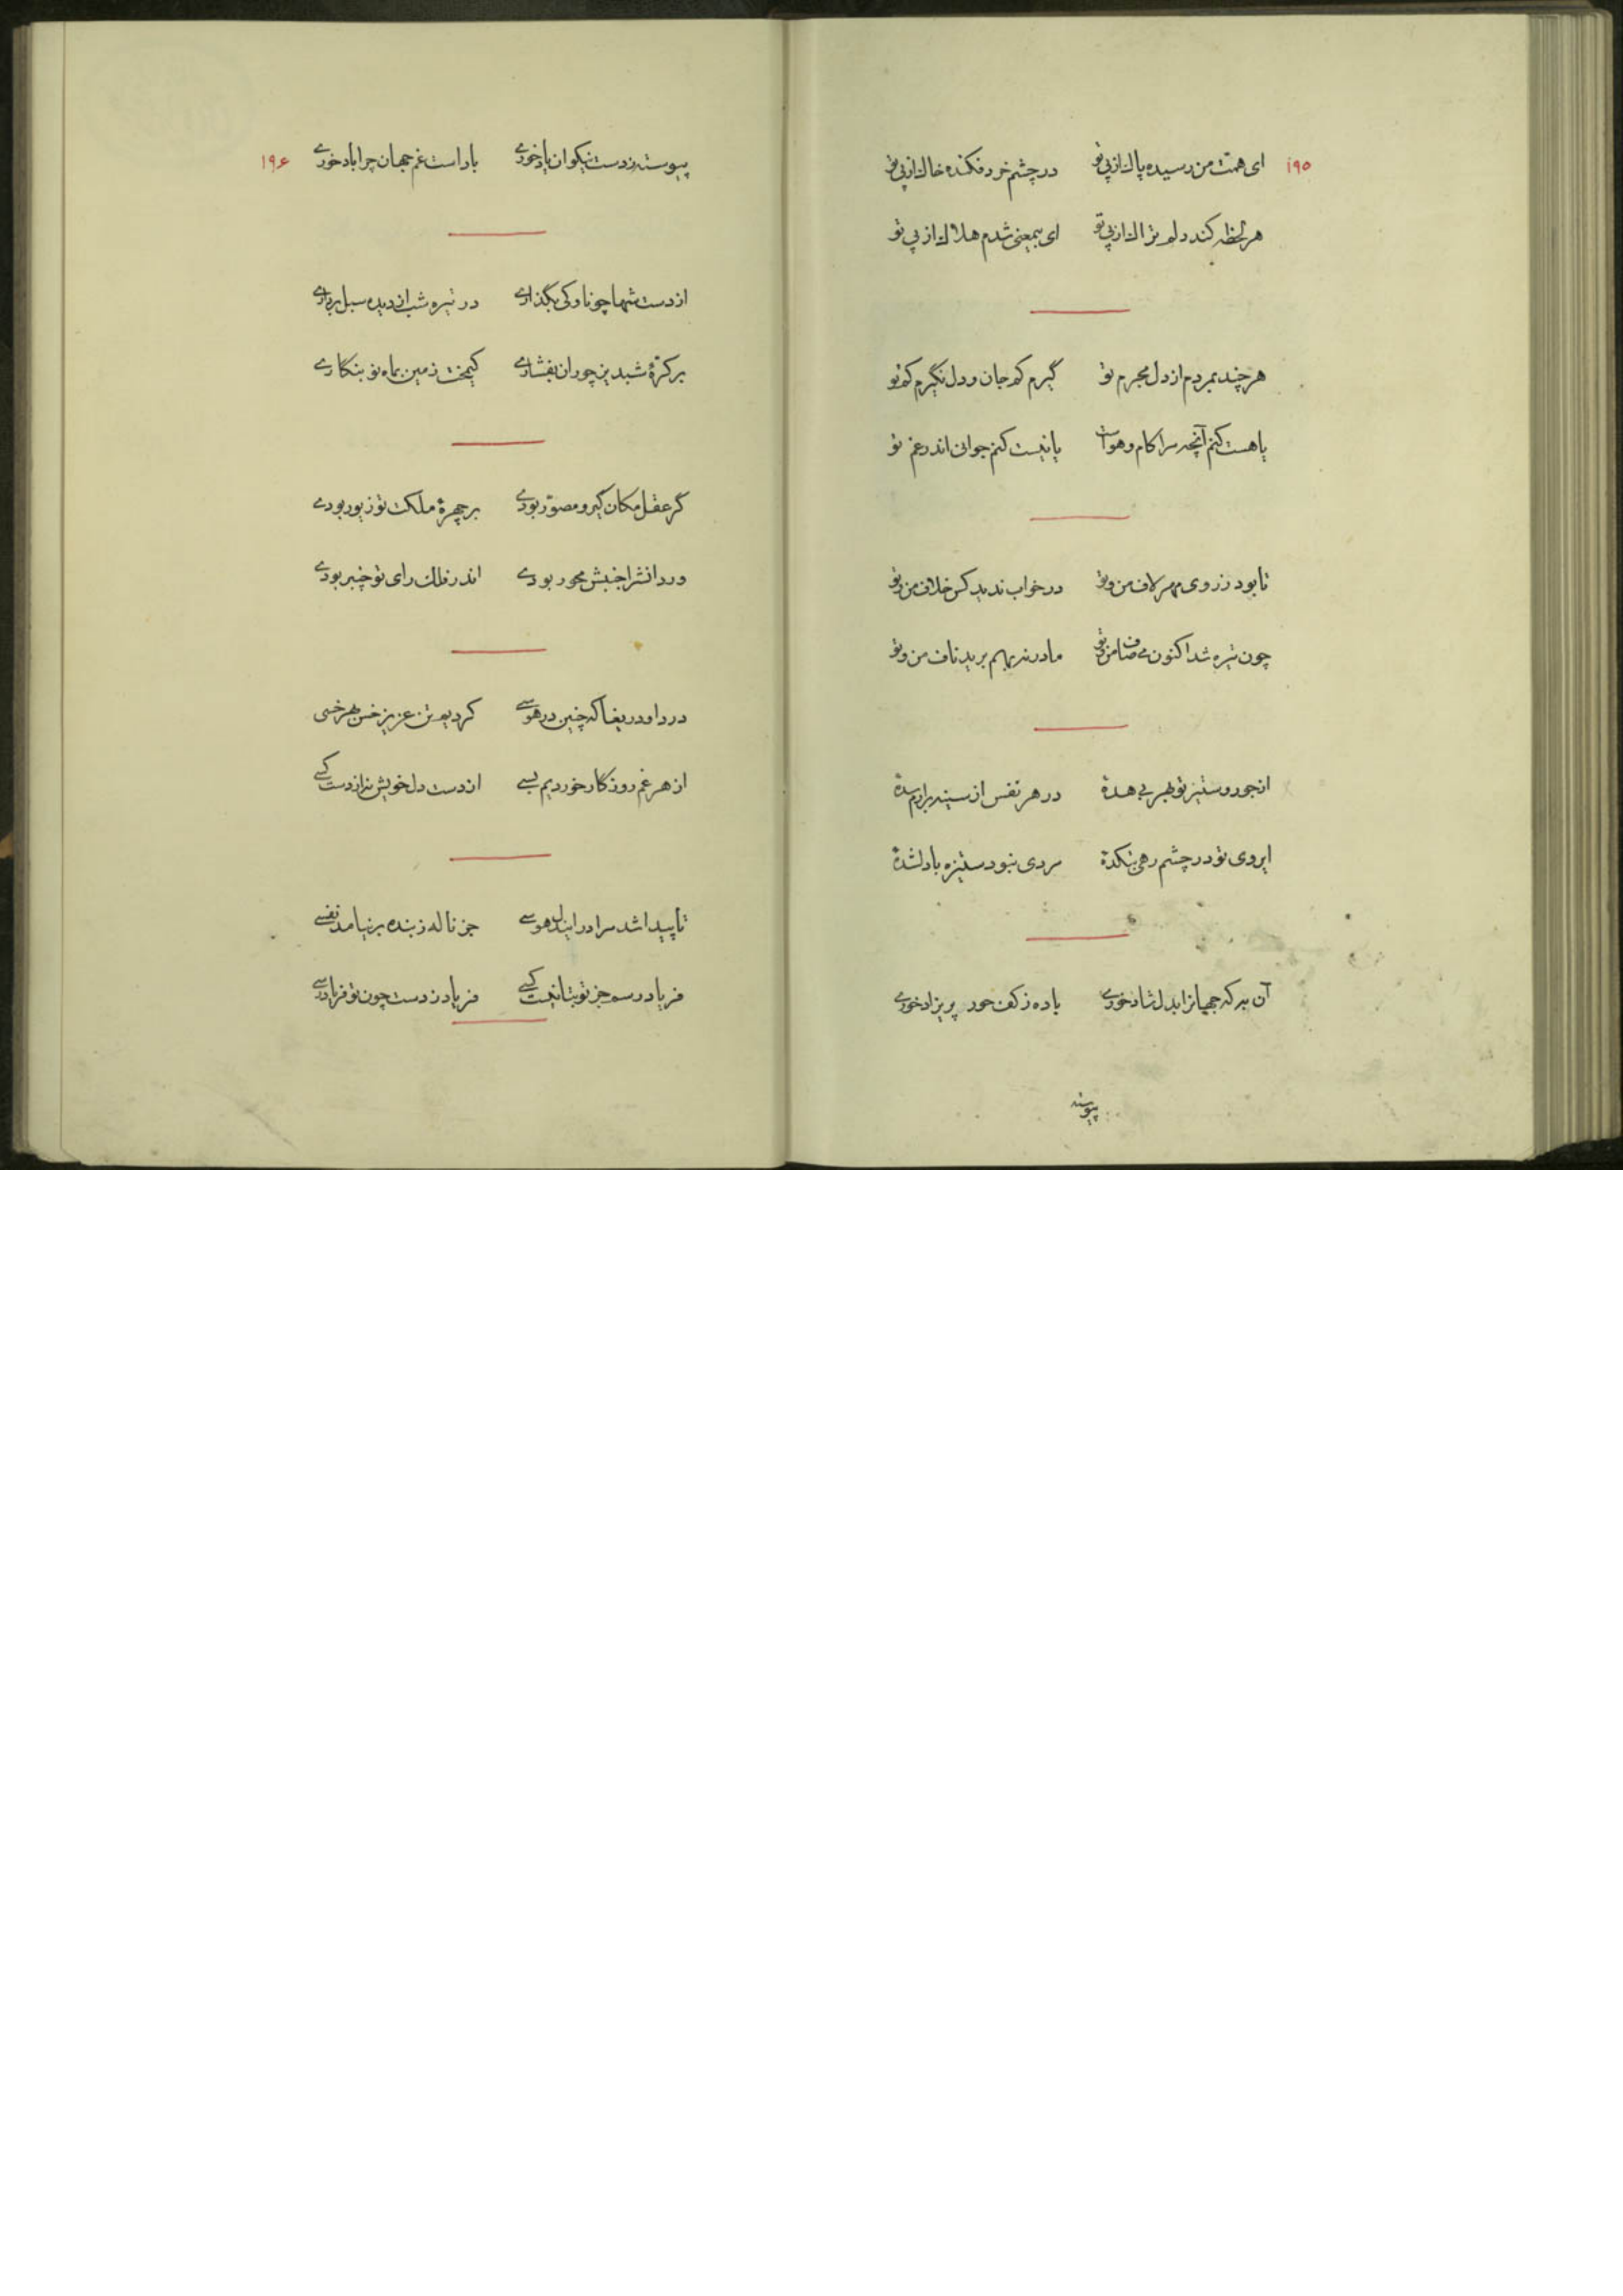 ۱۹۵
ای همت من رسیده پاک از پی تو در چشم خرد فکنده خاک از پی تو
هر لحظه کند دلم تراک از پی تو ای بیمعنی شدم هلاک از پی تو
هر چند بمردم از دل مجرم تو گیرم کم جان و دل نگیرم کم تو
یا هست کنم آنچه مرا کام و هواست یا نیست کنم جوانی اندر غم تو
تا بود ز روی مهر لاف من و تو در خواب ندید کس خلاف من و تو
چون تیره شد اکنون می صاف من و تو مادر نه بهم برید ناف من و تو
از جور و ستیز تو بهر بی هدهٔ در هر نفس از سینه برآرم سدهٔ
ای روی تو در چشم رهی بتکدهٔ مردی نبود ستیزه با دلشدهٔ
آن به که جهانرا بدل شاد خوری باده ز کف حور پریزاد خوری
پیوسته
۱۹۶
پیوسته ز دست نیکوان باده خوری باد است غم جهان چرا باد خوری
از دست شها چو ناوکی بگذاری در تیره شب از دیده سبل برداری
بر کرهٔ شبدیز چو ران بفشاری کیمخت زمین بماه نو بنگاری
گر عقل مکان گیر و مصور بودی بر چهرهٔ ملکت تو زیور بودی
ور دانش را جنبش محور بودی اندر فلک رای تو چنبر بودی
دردا و دریغا که چنین در هوسی کردیم تن عزیز خس بهر خسی
از هر غم روزگار خوردیم بسی از دست دل خویش نه از دست کسی
تا پیدا شد مرا در این دل هوسی جز ناله ز بنده برنیامد نفسی
فریادرسم جز تو بتا نیست کسی فریاد ز دست چون تو فریادرسی